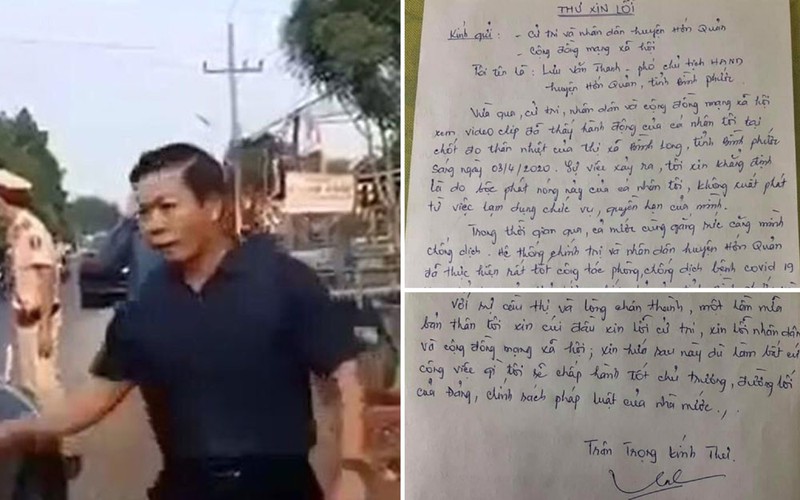 THƯ XIN LỖI
Kính gửi : - Cử tri và nhân dân huyện Hớn Quản
- Cộng đồng mạng xã hội
Tôi tên là : Lưu Văn Thanh - phó chủ tịch HĐND
huyện Hớn Quản, tỉnh Bình Phước.
Vừa qua, cử tri, nhân dân và cộng đồng mạng xã hội
xem video clip đã thấy hành động của cá nhân tôi tại
chốt đo thân nhiệt của thị xã Bình Long, tỉnh Bình Phước
sáng ngày 03/4/2020. Sự việc xảy ra, tôi xin khẳng định
là do bộc phát nóng nảy của cá nhân tôi, không xuất phát
từ việc lạm dụng chức vụ, quyền hạn của mình.
Trong thời gian qua, cả nước cùng gắng sức căng mình
chống dịch. Hệ thống chính trị và nhân dân huyện Hớn Quản
đã thực hiện rất tốt công tác phòng, chống dịch bệnh covid 19
Với sự cầu thị và lòng chân thành, một lần nữa
bản thân tôi xin cúi đầu xin lỗi cử tri, xin lỗi nhân dân
và cộng đồng mạng xã hội; xin hứa sau này dù làm bất cứ
công việc gì tôi sẽ chấp hành tốt chủ trương, đường lối
của Đảng, chính sách pháp luật của nhà nước./.
Trân Trọng Kính Thư.